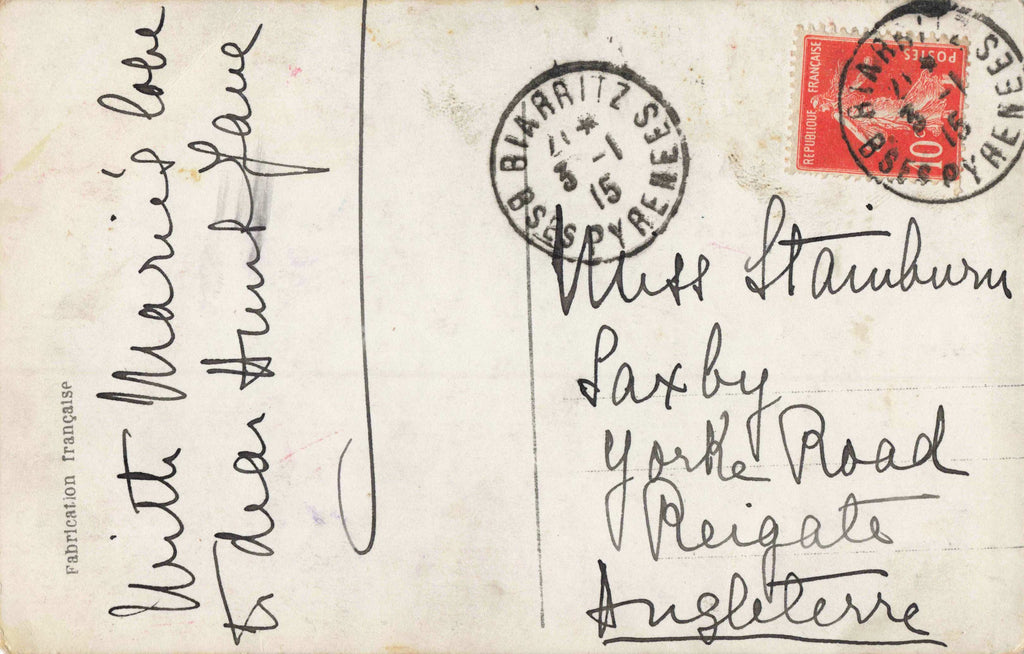 With Marie's love
To dear Aunt Jane
Fabrication française
BIARRITZ
3-1
15
BSES PYRENEES
REPUBLIQUE FRANÇAISE
POSTES
10
BIARRITZ
-1
15
BSES PYRENEES
Miss Stainburn
Saxby
Yorke Road
Reigate
Angleterre